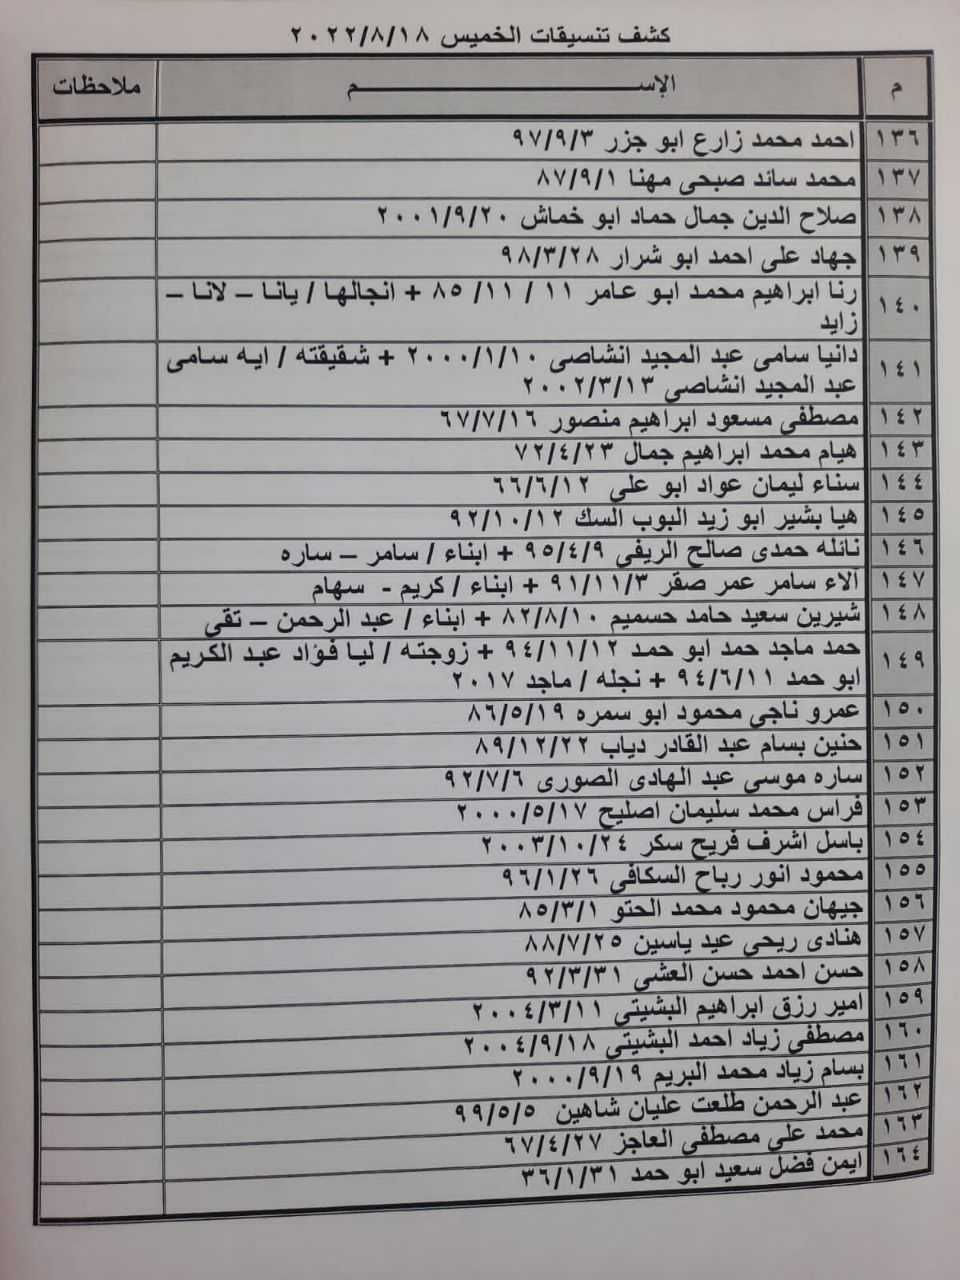 كشف تنسيقات الخميس ٢٠٢٢/٨/١٨
م الإســـــــــــــــم ملاحظات
١٣٦ احمد محمد زارع ابو جزر ٩٧/٩/٣
١٣٧ محمد سائد صبحى مهنا ٨٧/٩/١
١٣٨ صلاح الدين جمال حماد ابو خماش ٢٠٠١/٩/٢٠
١٣٩ جهاد على احمد ابو شرار ٩٨/٣/٢٨
١٤٠ رنا ابراهيم محمد ابو عامر ١١ / ١١/ ٨٥ + انجالها / يانا – لانا –
زايد
١٤١ دانيا سامى عبد المجيد انشاصى ٢٠٠٠/١/١٠ + شقيقته / ايه سامى
عبد المجيد انشاصى ٢٠٠٢/٣/١٣
١٤٢ مصطفى مسعود ابراهيم منصور ٦٧/٧/١٦
١٤٣ هيام محمد ابراهيم جمال ٧٢/٤/٢٣
١٤٤ سناء ليمان عواد ابو على ٦٦/٦/١٢
١٤٥ هيا بشير ابو زيد البوب السك ٩٢/١٠/١٢
١٤٦ نائله حمدى صالح الريفى ٩٥/٤/٩ + ابناء / سامر – ساره
١٤٧ آلاء سامر عمر صقر ٩١/١١/٣ + ابناء / كريم - سهام
١٤٨ شيرين سعيد حامد حسميم ٨٢/٨/١٠ + ابناء / عبد الرحمن – تقى
١٤٩ حمد ماجد حمد ابو حمد ٩٤/١١/١٢ + زوجته / ليا فؤاد عبد الكريم
ابو حمد ٩٤/٦/١١ + نجله / ماجد ٢٠١٧
١٥٠ عمرو ناجى محمود ابو سمره ٨٦/٥/١٩
١٥١ حنين بسام عبد القادر دياب ٨٩/١٢/٢٢
١٥٢ ساره موسى عبد الهادى الصورى ٩٢/٧/٦
١٥٣ فراس محمد سليمان اصليح ٢٠٠٠/٥/١٧
١٥٤ باسل اشرف فريح سكر ٢٠٠٣/١٠/٢٤
١٥٥ محمود انور رباح السكافى ٩٦/١/٢٦
١٥٦ جيهان محمود محمد الحتو ٨٥/٣/١
١٥٧ هنادى ريحى عيد ياسين ٨٨/٧/٢٥
١٥٨ حسن احمد حسن العشى ٩٢/٣/٣١
١٥٩ امير رزق ابراهيم البشيتى ٢٠٠٤/٣/١١
١٦٠ مصطفى زياد احمد البشيتى ٢٠٠٤/٩/١٨
١٦١ بسام زياد محمد البريم ٢٠٠٠/٩/١٩
١٦٢ عبد الرحمن طلعت عليان شاهين ٩٩/٥/٥
١٦٣ محمد على مصطفى العاجز ٦٧/٤/٢٧
١٦٤ ايمن فضل سعيد ابو حمد ٣٦/١/٣١